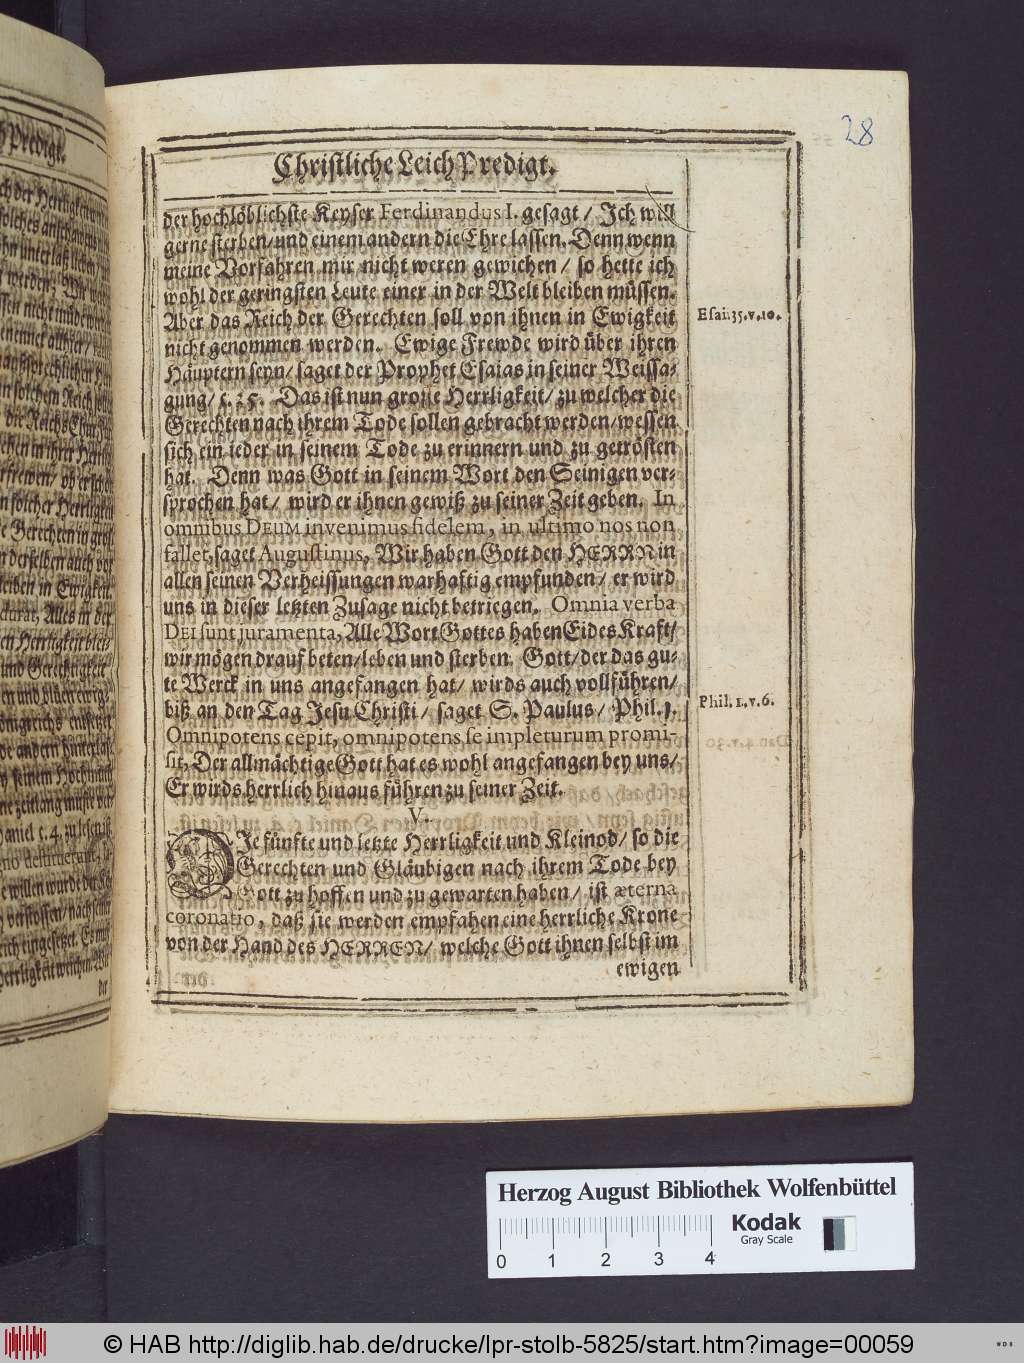 28
Christliche LeichPredigt.
der hochlöblichste Keyser Ferdinandus I. gesagt / Jch will
gerne sterben/und einem andern die Ehre lassen. Denn wenn
meine Vorfahren mir nicht weren gewichen / so hette ich
wohl der geringsten Leute einer in der Welt bleiben müssen.
Aber das Reich der Gerechten soll von ihnen in Ewigkeit
nicht genommen werden. Ewige Frewde wird über ihren
Häuptern seyn/ saget der Prophet Esaias in seiner Weissa-
gung/ c. 35. Das ist nun grosse Herrligkeit/ zu welcher die
Gerechten nach ihrem Tode sollen gebracht werden/wessen
sich ein ieder in seinem Tode zu erinnern und zu getrösten
hat. Denn was Gott in seinem Wort den Seinigen ver-
sprochen hat/ wird er ihnen gewiß zu seiner Zeit geben. In
omnibus DEUM invenimus fidelem, in ultimo nos non
fallet, saget Augustinus, Wir haben Gott den HERRN in
allen seinen Verheissungen warhaftig empfunden/ er wird
uns in dieser letzten Zusage nicht betriegen. Omnia verba
DEI sunt juramenta, Alle Wort Gottes haben Eides Kraft/
wir mögen drauf beten/leben und sterben. Gott/der das gu-
te Werck in uns angefangen hat/ wirds auch vollführen/
biß an den Tag Jesu Christi/ saget S. Paulus/ Phil. 1.
Omnipotens cepit, omnipotens se impleturum promi-
sit, Der allmächtige Gott hat es wohl angefangen bey uns/
Er wirds herrlich hinaus führen zu seiner Zeit.
V.
DJe fünfte und letzte Herrligkeit und Kleinod/ so die
Gerechten und Gläubigen nach ihrem Tode bey
Gott zu hoffen und zu gewarten haben/ ist æterna
coronatio, daß sie werden empfahen eine herrliche Krone
von der Hand des HERREN/ welche Gott ihnen selbst im
ewigen
Esai. 35. v. 10.
Phil. 1. v. 6.
Herzog August Bibliothek Wolfenbüttel
Kodak
Gray Scale
0 1 2 3 4
© HAB http://diglib.hab.de/drucke/lpr-stolb-5825/start.htm?image=00059